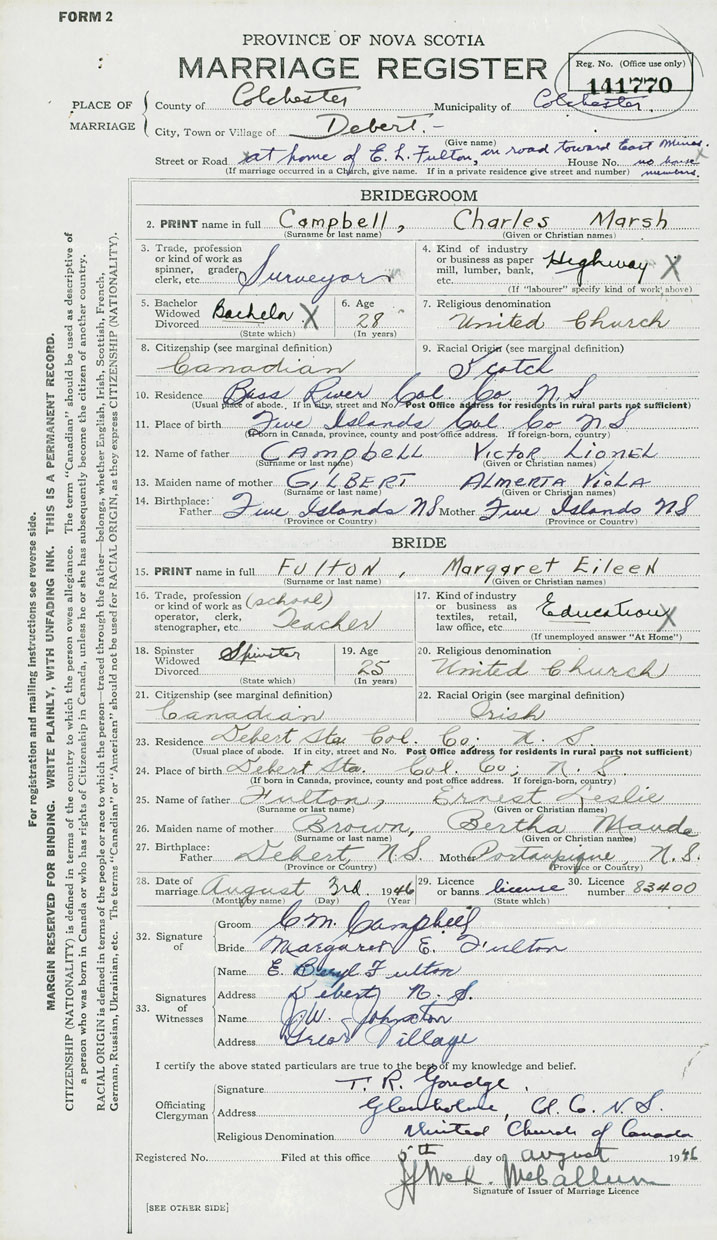 FORM 2
PROVINCE OF NOVA SCOTIA
MARRIAGE REGISTER
Reg. No. (Office use only)
141770
PLACE OF MARRIAGE
County of Colchester Municipality of Colchester.
City, Town or Village of Debert.-
(Give name)
Street or Road at home of E. L. Fulton, on road toward East Mines. House No. no house numbers.
(If marriage occurred in a Church, give name. If in a private residence give street and number)
BRIDEGROOM
2. PRINT name in full Campbell, Charles Marsh
(Surname or last name) (Given or Christian names)
3. Trade, profession or kind of work as spinner, grader, clerk, etc. Surveyor
4. Kind of industry or business as paper mill, lumber, bank, etc. Highway X
(If "labourer" specify kind of work above)
5. Bachelor Widowed Divorced Bachelor X
(State which)
6. Age 28
(In years)
7. Religious denomination United Church
8. Citizenship (see marginal definition) Canadian
9. Racial Origin (see marginal definition) Scotch
10. Residence Bass River Col. Co. N S
(Usual place of abode. If in city, street and No. Post Office address for residents in rural parts not sufficient)
11. Place of birth Five Islands Col. Co N.S
(If born in Canada, province, county and post office address. If foreign-born, country)
12. Name of father CAMPBELL VICTOR LIONEL
(Surname or last name) (Given or Christian names)
13. Maiden name of mother GILBERT ALMERTA VIOLA
(Surname or last name) (Given or Christian names)
14. Birthplace: Father Five Islands NS Mother Five Islands NS
(Province or Country) (Province or Country)
BRIDE
15. PRINT name in full FULTON, Margaret EileeN
(Surname or last name) (Given or Christian names)
16. Trade, profession or kind of work as operator, clerk, stenographer, etc. (school) Teacher
17. Kind of industry or business as textiles, retail, law office, etc. Education X
(If unemployed answer "At Home")
18. Spinster Widowed Divorced Spinster
(State which)
19. Age 25
(In years)
20. Religious denomination United Church
21. Citizenship (see marginal definition) Canadian
22. Racial Origin (see marginal definition) Irish
23. Residence Debert Sta. Col. Co; N. S.
(Usual place of abode. If in city, street and No. Post Office address for residents in rural parts not sufficient)
24. Place of birth Debert Sta. Col. Co; N. S.
(If born in Canada, province, county and post office address. If foreign-born, country)
25. Name of father Fulton, Ernest Leslie
(Surname or last name) (Given or Christian names)
26. Maiden name of mother Brown, Bertha Maude
(Surname or last name) (Given or Christian names)
27. Birthplace: Father Debert, N.S. Mother Portaupique, N.S.
(Province or Country) (Province or Country)
28. Date of marriage August 3rd 1946
(Month by name) (Day) (Year)
29. Licence or banns license
(State which)
30. Licence number 83400
32. Signature of
Groom C.M. Campbell
Bride Margaret E. Fulton
33. Signatures of Witnesses
Name E. Beryl Fulton
Address Debert, N. S.
Name J.W. Johnston
Address Great Village
I certify the above stated particulars are true to the best of my knowledge and belief.
Officiating Clergyman
Signature T. R. Goudge.
Address Glenholme, Col. Co. N.S.
Religious Denomination United Church of Canada
Registered No. Filed at this office 5th day of august 1946
McCallum
Signature of Issuer of Marriage Licence
[SEE OTHER SIDE]
For registration and mailing instructions see reverse side.
MARGIN RESERVED FOR BINDING. WRITE PLAINLY, WITH UNFADING INK. THIS IS A PERMANENT RECORD.
CITIZENSHIP (NATIONALITY) is defined in terms of the country to which the person owes allegiance. The term "Canadian" should be used as descriptive of
a person who was born in Canada or who has rights of Citizenship in Canada, unless he or she has subsequently become the citizen of another country.
RACIAL ORIGIN is defined in terms of the people or race to which the person—traced through the father—belongs, whether English, Irish, Scottish, French,
German, Russian, Ukrainian, etc. The terms "Canadian" or "American" should not be used for RACIAL ORIGIN, as they express CITIZENSHIP (NATIONALITY).